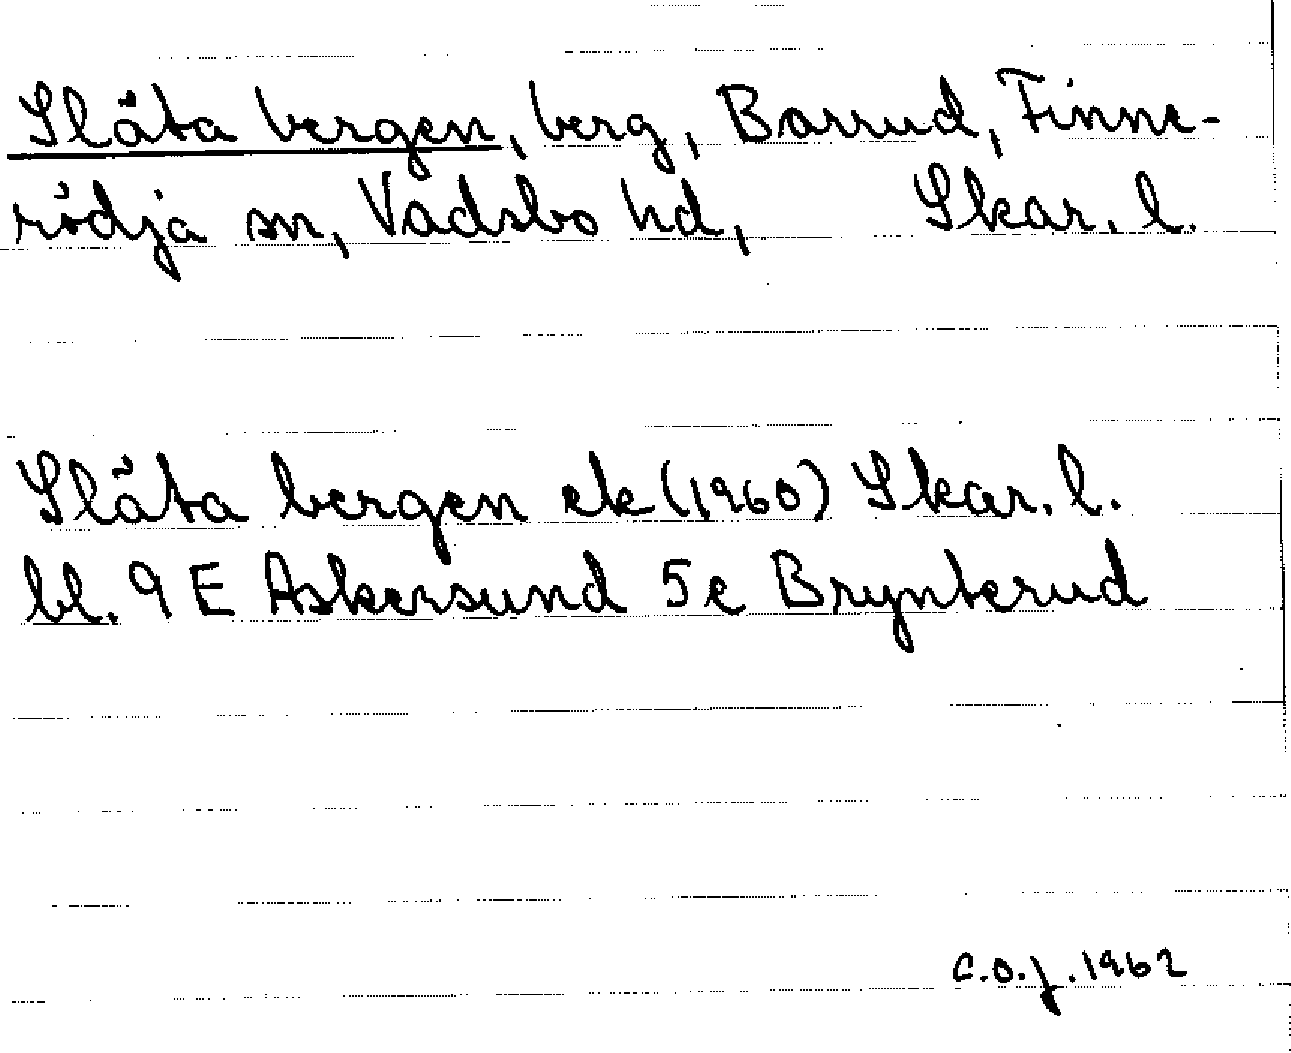 Släta bergen, berg, Barrud, Finne-
rödja sn, Vadsbo hd, Skar. l.
Släta bergen ek (1960) Skar. l.
bl. 9 E Askersund 5e Brynterud
C.O.J. 1962